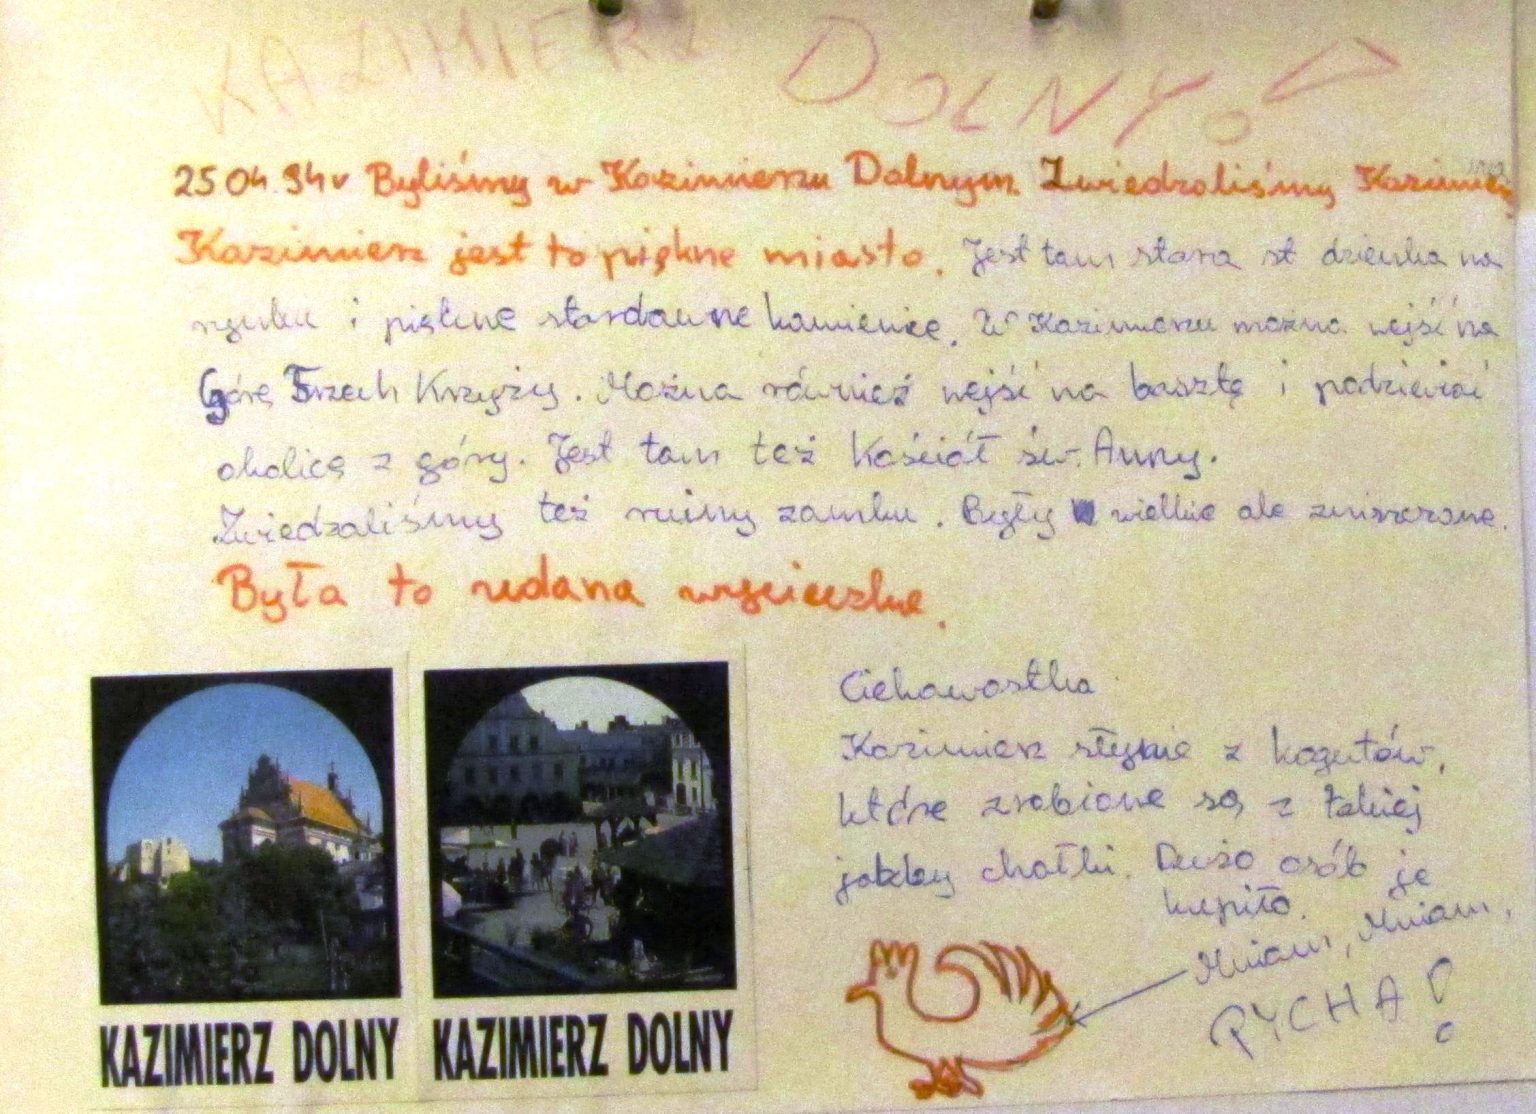 KAZIMIERZ DOLNY!
25 04. 94r Byliśmy w Kazimierzu Dolnym. Zwiedzaliśmy Kazimierz.
Kazimierz jest to piękne miasto. Jest tam stara st dzienka na
rynku i piękne starodawne kamienice. W Kazimierzu można wejść na
Górę Trzech Krzyży. Można również wejść na basztę i podziwiać
okolicę z góry. Jest tam też Kościół św. Anny.
Zwiedzaliśmy też ruiny zamku. Były wielkie ale zniszczone.
Była to udana wycieczka.
Ciekawostka
Kazimierz słynie z kogutów,
które zrobione są z takiej
jakby chałki. Dużo osób je
kupiło.
Mniam, Mniam,
PYCHA!
KAZIMIERZ DOLNY
KAZIMIERZ DOLNY